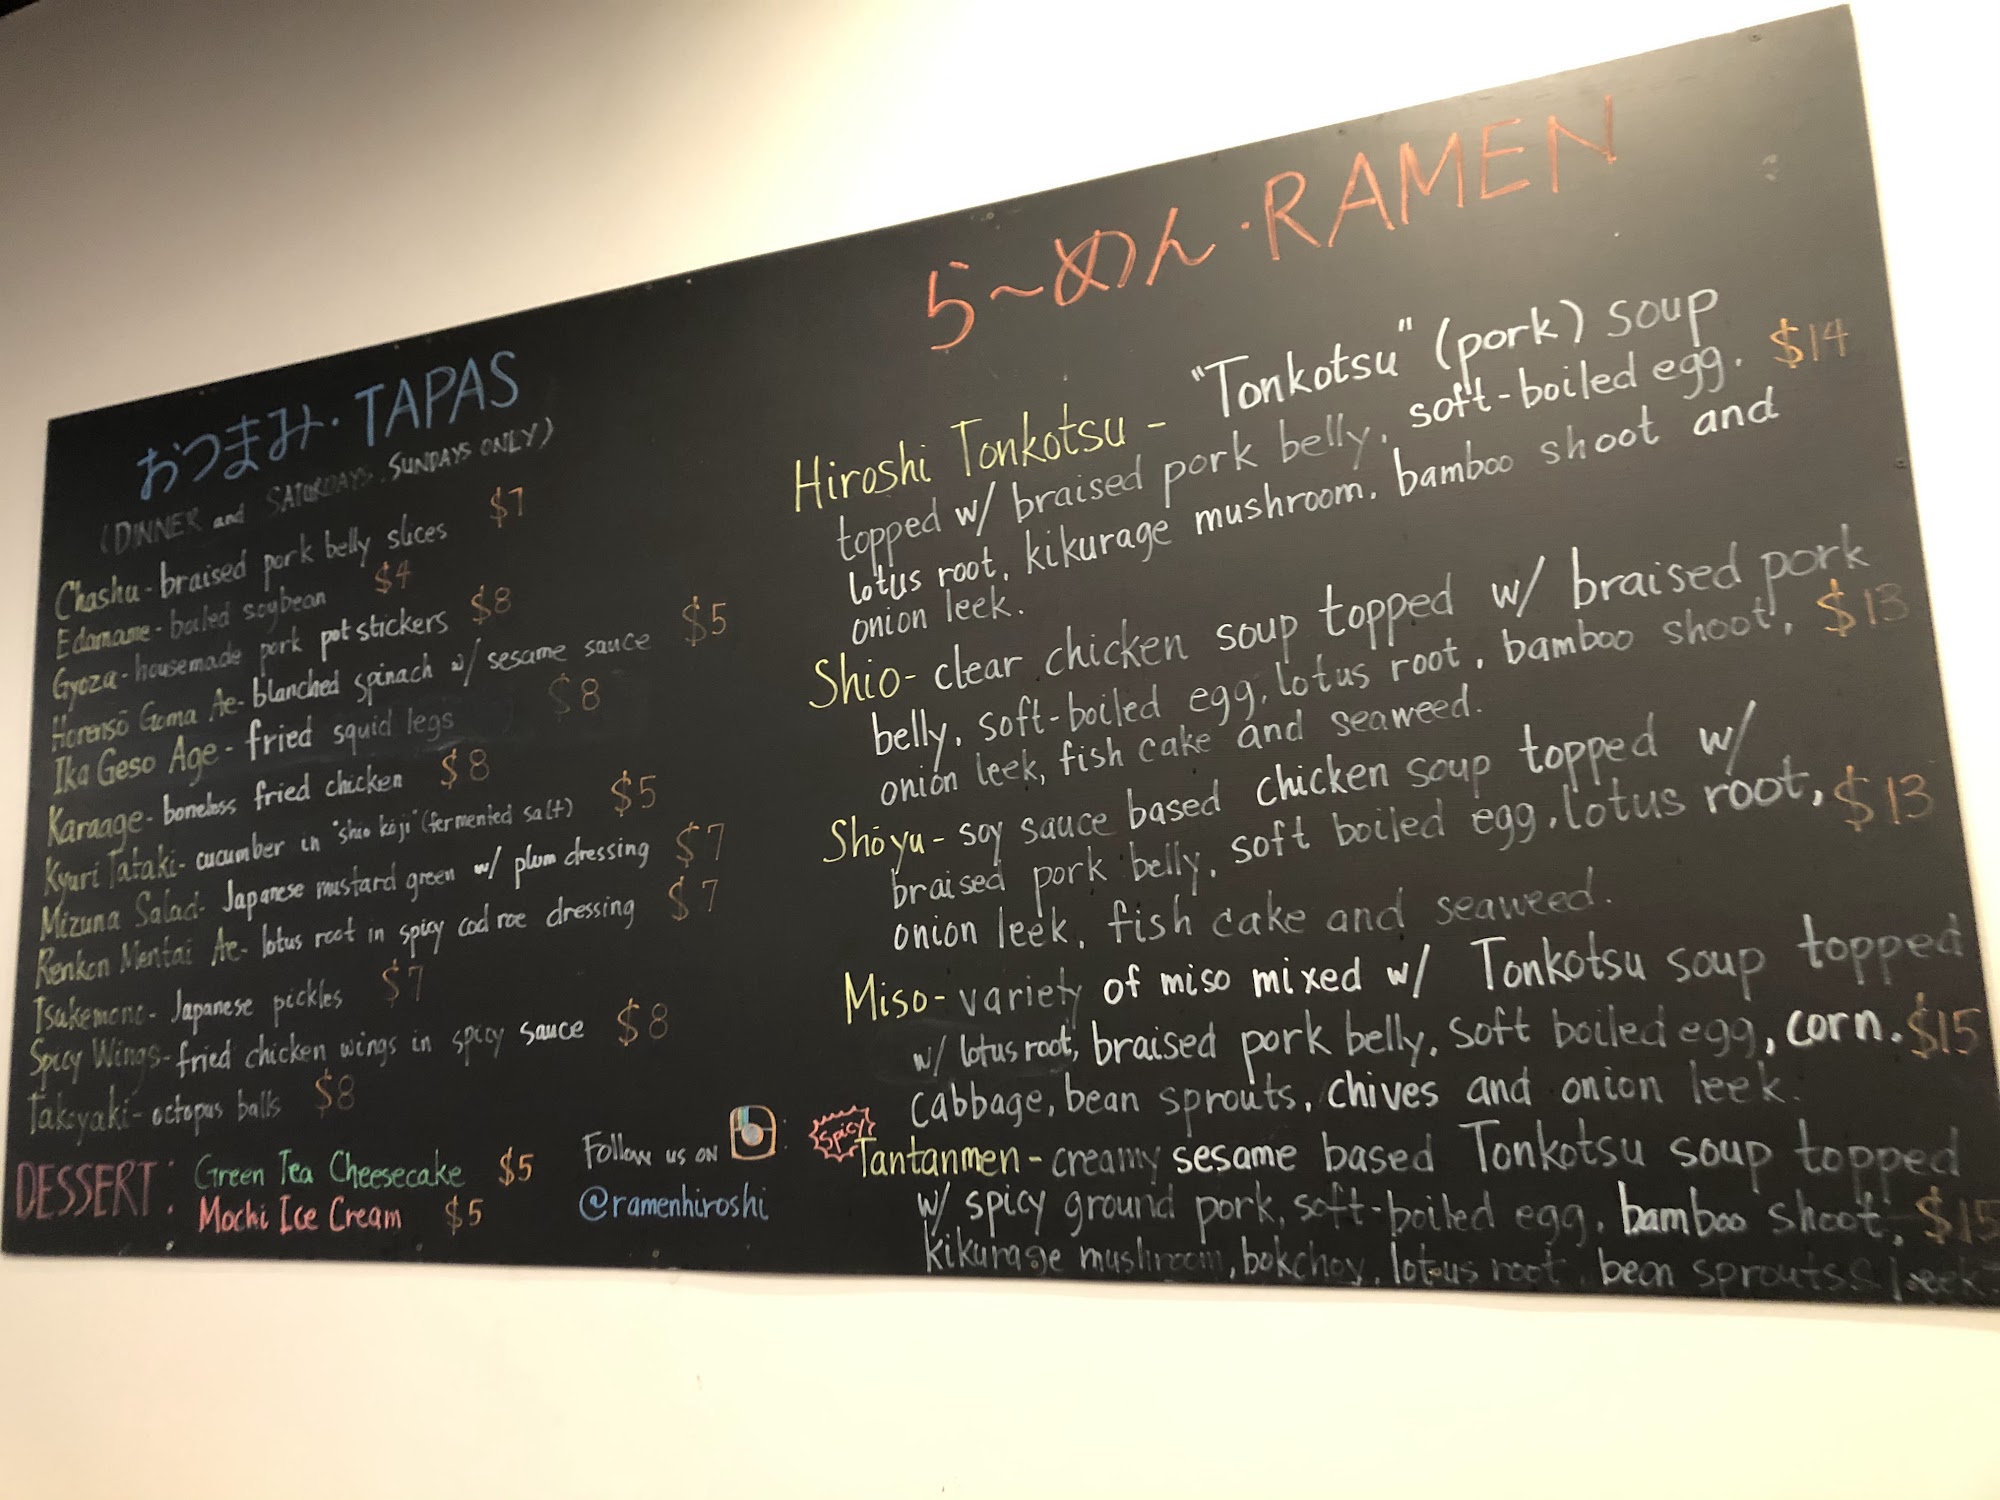 おつまみ・TAPAS
(DINNER and SATURDAYS, SUNDAYS ONLY)
Chashu - braised pork belly slices $7
Edamame - boiled soybean $4
Gyoza - housemade pork pot stickers $8
Horensō Goma Ae - blanched spinach w/ sesame sauce $5
Ika Geso Age - fried squid legs $8
Karaage - boneless fried chicken $8
Kyuri Tataki - cucumber in "shio koji" (fermented salt) $5
Mizuna Salad - Japanese mustard green w/ plum dressing $7
Renkon Mentai Ae - lotus root in spicy cod roe dressing $7
Tsukemono - Japanese pickles $7
Spicy Wings - fried chicken wings in spicy sauce $8
Takoyaki - octopus balls $8
DESSERT: Green Tea Cheesecake $5
Mochi Ice Cream $5
Follow us on :
@ramenhiroshi
ら〜めん・RAMEN
Hiroshi Tonkotsu - "Tonkotsu" (pork) soup
topped w/ braised pork belly, soft-boiled egg, $14
lotus root, kikurage mushroom, bamboo shoot and
onion leek.
Shio - clear chicken soup topped w/ braised pork
belly, soft-boiled egg, lotus root, bamboo shoot, $13
onion leek, fish cake and seaweed.
Shōyu - soy sauce based chicken soup topped w/
braised pork belly, soft boiled egg, lotus root, $13
onion leek, fish cake and seaweed.
Miso - variety of miso mixed w/ Tonkotsu soup topped
w/ lotus root, braised pork belly, soft boiled egg, corn, $15
cabbage, bean sprouts, chives and onion leek.
Spicy Tantanmen - creamy sesame based Tonkotsu soup topped
w/ spicy ground pork, soft-boiled egg, bamboo shoot, $15
kikurage mushroom, bokchoy, lotus root, bean sprouts & leek.